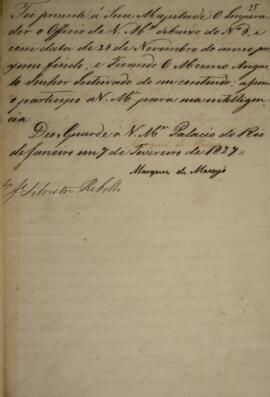 25
Foi presente á Sua Magestade O Impera
dor o Officio de V. Mce debaxo do Nº 3, e
com data de 23 de Novembro do anno pro
ximo findo; e Ficando O Mesmo Augus
to Senhor Inteirado do seu contendo; assim
o participo a V. Mce para sua intelligen
cia
Deos Guarde a V. Mce Palacio do Rio
de Janeiro em 7 de Fevereiro de 1827.
Marquez de Maceyó
Sr Je Silvestre Rebello